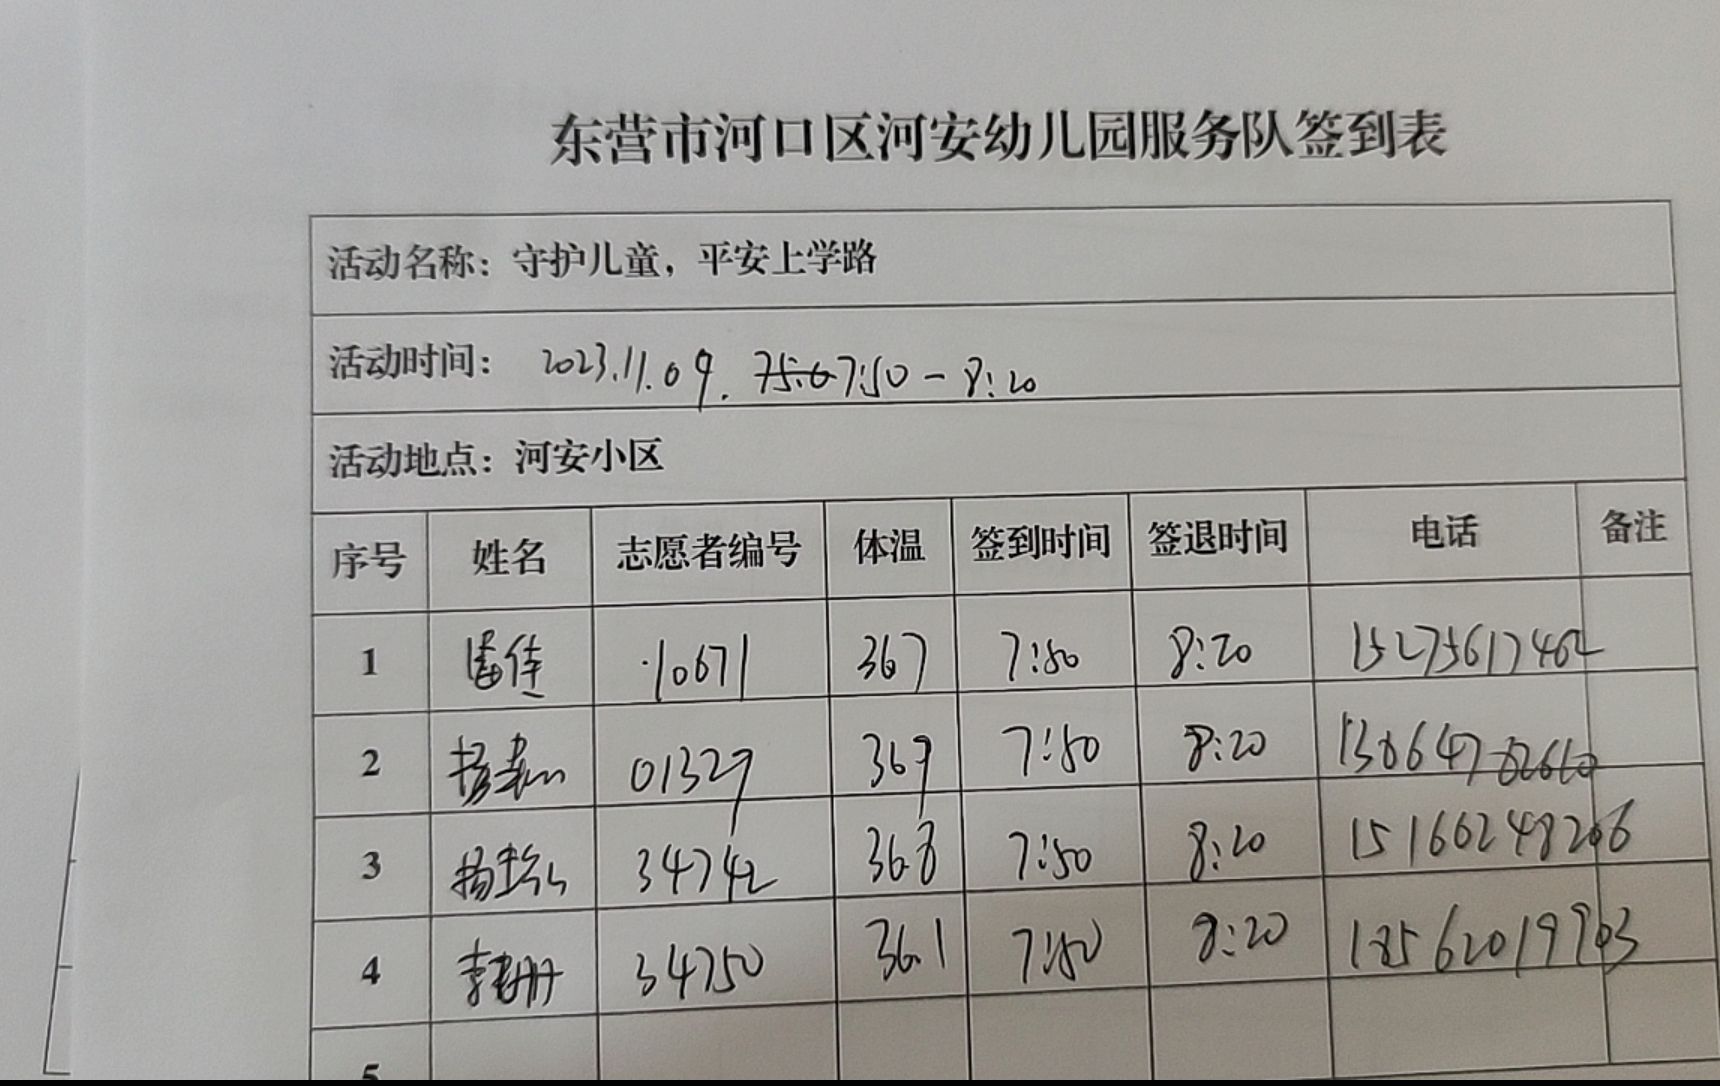 东营市河口区河安幼儿园服务队签到表
活动名称：守护儿童，平安上学路
活动时间： 2023.11.09. 7:50-8:20
活动地点：河安小区
序号 姓名 志愿者编号 体温 签到时间 签退时间 电话 备注
1 10671 36.7 7:50 8:20 15275617462
2 01329 36.9 7:50 8:20
3 34742 36.8 7:50 8:20 15166248206
4 34750 36.1 7:50 8:20 18562019903
5